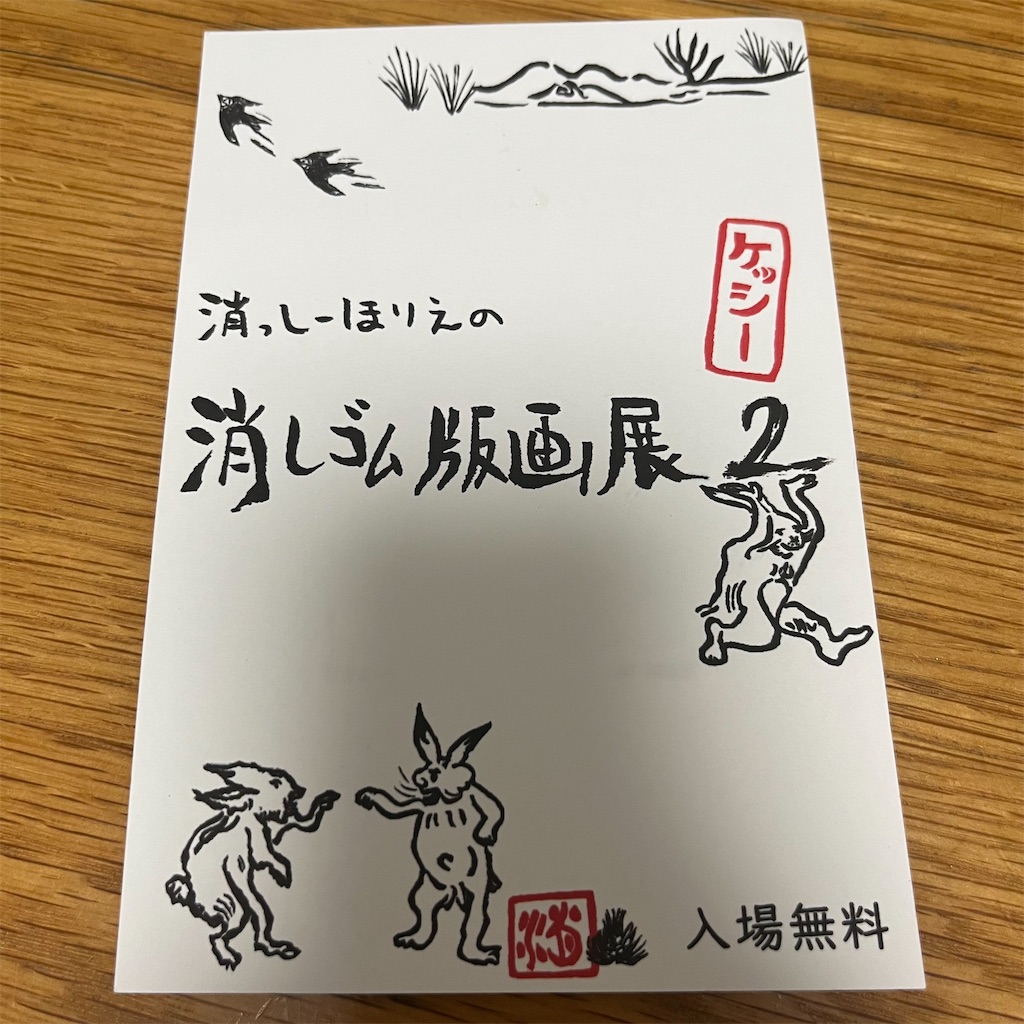 ケッシー
消っしーほりえの
消しゴム版画展2
消
入場無料